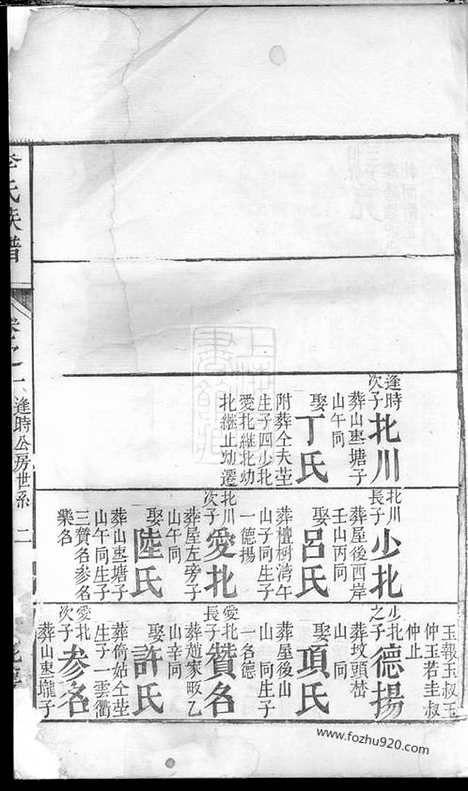 逢時
次子
北川
葬山惠塘子
山午同
娶
丁氏
附葬仝夫塋
生子四少北
愛北繼北幼
北繼止幼遷
北川
長子
少北
葬屋後西岸
壬山丙同
娶
呂氏
葬檀樹湾午
山子同生子
一德揚
北川
次子
愛北
葬屋左旁子
山午同
娶
陸氏
葬山惠塘子
山午同生子
三贊名参名
樂名
玉報玉叔玉
仲玉若圭叔
仲止
少北
之子
德揚
葬坟頭
山同
娶
項氏
葬屋後山
山同生子
一名德
愛北
長子
贊名
葬趙家畈乙
山辛同
娶
許氏
葬倚姑仝塋
生子一雲衢
愛北
次子
参名
葬山惠壠子
氏族譜
卷之一
逢時公房世系
二
www.fozhu920.com